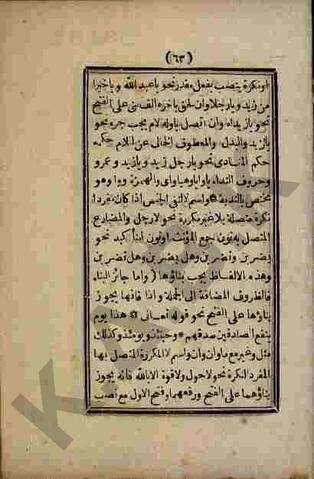 (٦٣)
اونكرة ينتصب بفعل مقدر نحو ياعبد الله وياخيرا
من زيد ويارجلا وان لحق باخره الف بنى على الفتح
نحو يازيداه وان اتصل باوله لام يجب جره نحو
يالزيد والبدل والمعطوف الخالى عن اللام حكمه
حكم المنادى نحو يارجل زيد ويازيد وعمرو
وحروف النداء يا وايا وهيا واى والهمزة ووا وهو
مختص بالندبة واسم لا لنفى الجنس اذا كان مفردا
نكرة متصلة بلا غير مكررة نحو لا رجل والمضارع
المتصل به نون جمع المؤنث اونون التأكيد نحو
يضربن وتضربن وهل يضربن وهل تضربن
وهذه الالفاظ يجب بناؤها (واما جائز البناء
فالظروف المضافة الى الجملة واذ فانها يجوز
بناؤها على الفتح نحو قوله تعالى * هذا يوم
ينفع الصادقين صدقهم * وحينئذ ويومئذ وكذلك
مثل وغير مع ما وان وان واسم لا المكررة المتصل بها
المفرد النكرة نحو لاحول ولاقوة الا بالله فانه يجوز
بناؤهما على الفتح ورفعهما وفتح الاول مع نصب